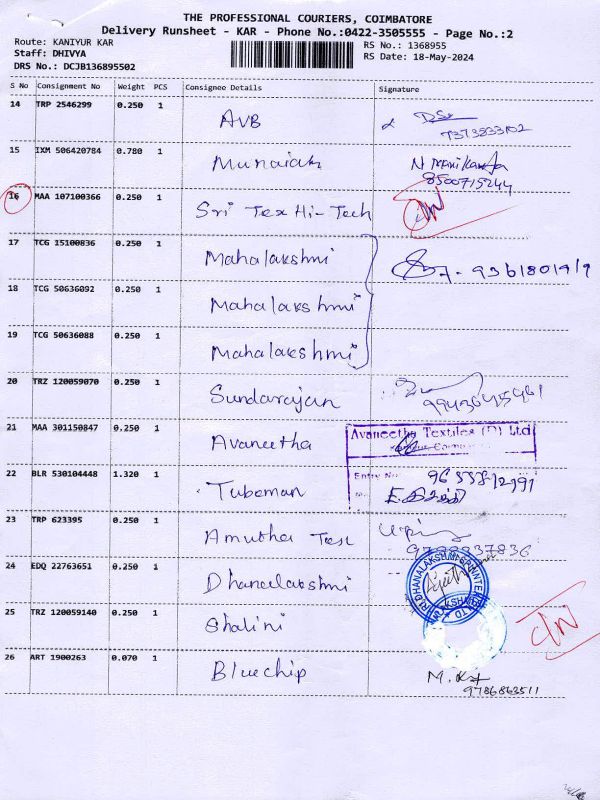 THE PROFESSIONAL COURIERS, COIMBATORE
Delivery Runsheet - KAR - Phone No.:0422-3505555 - Page No.:2
Route: KANIYUR KAR
RS No.: 1368955
Staff: DHIVYA
RS Date: 18-May-2024
DRS No.: DCJB136895502
S No Consignment No Weight PCS Consignee Details Signature
14 TRP 2546299 0.250 1 AVB
15 IXM 506420784 0.780 1 Munaiah
8500715244
16 MAA 107100366 0.250 1 Sri Tex Hi-Tech
17 TCG 15100836 0.250 1 Mahalakshmi
18 TCG 50636092 0.250 1 Mahalakshmi
19 TCG 50636088 0.250 1 Mahalakshmi
20 TRZ 120059070 0.250 1 Sundarajan
21 MAA 301150847 0.250 1 Avaneetha Avaneetha Textiles (P) Ltd
22 BLR 530104448 1.320 1 Tubeman Entry No
23 TRP 623395 0.250 1 Amutha Tex
24 EDQ 22763651 0.250 1 Dhanalakshmi
25 TRZ 120059140 0.250 1 Shalini
26 ART 1900263 0.070 1 Bluechip
9786863511